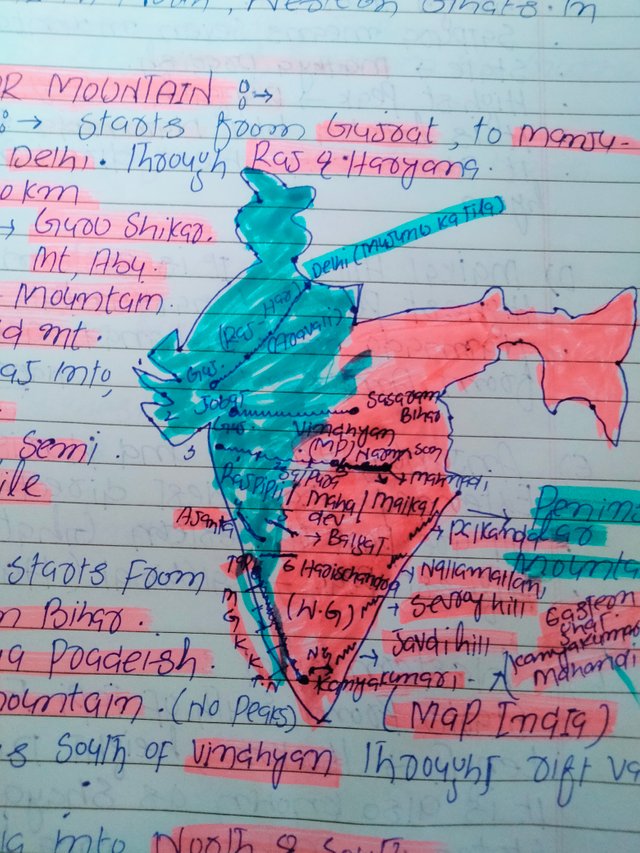 Ghats. In
R MOUNTAIN :→
:→ starts from Gujrat, to manju-
Delhi. Through Raj & Haryana.
0km
→ Guru Shikar.
Mt, Abu.
Mountain.
d mt.
as into,
Semi.
ile
starts From
n Bihar.
a Pradersh.
mountain. (No Peaks)
s south of Vindhyan Through rift va
ia into North & South
Delhi (Majumo ka tila)
(Raj - Har)
(Aravali)
Guj
Jobat
Guj
Sasaram
Bihar
Vindhyan
(MP)
Narm Son
mahanadi
Rajpipla
Maha
dev
Maikal
Ajanta
→ Balyat
Harischandra
(W.G)
M
G
K
K
T.N
Kanyakumari
→ Penin
Mounta
→ Nallamallan,
→ Sevroy hill
→ Javdi hill
Eastern
Ghat.
Kanyakumar
Mahanadi
(Map India)